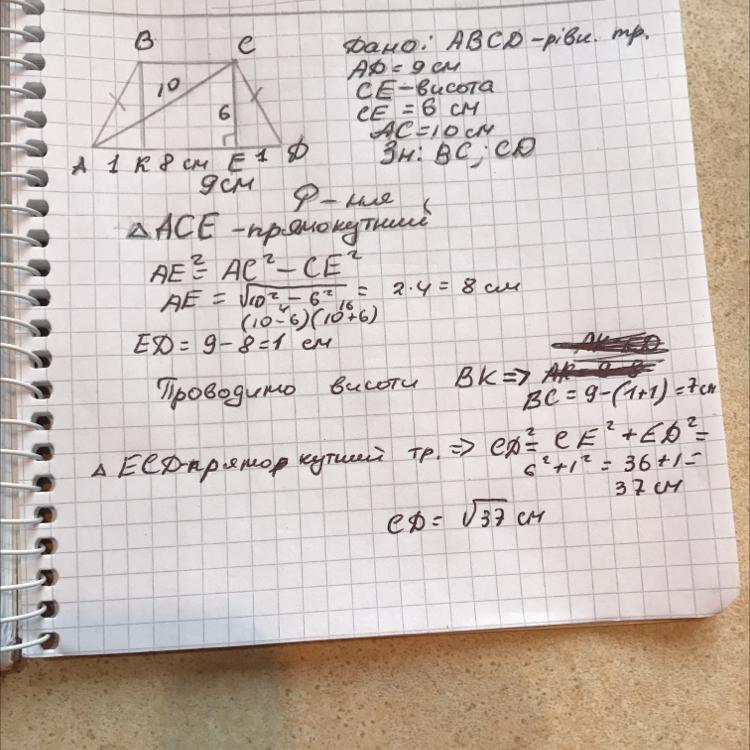 B C
10
6
A 1 K 8 см E 1 D
9см
Дано: ABCD - рівн. тр.
AD = 9 см
CE - висота
CE = 6 см
AC = 10 см
Зн: BC; CD
Р - ння
△ ACE - прямокутний
AE² = AC² - CE²
AE = √10² - 6² = 2·4 = 8 см
4 16
(10-6)(10+6)
ED = 9 - 8 = 1 см
Проводимо висоти BK =>
BC = 9 - (1+1) = 7см
△ ECD-прямор кутний тр. => CD² = CE² + ED² =
6² + 1² = 36 + 1 =
37 см
CD = √37 см